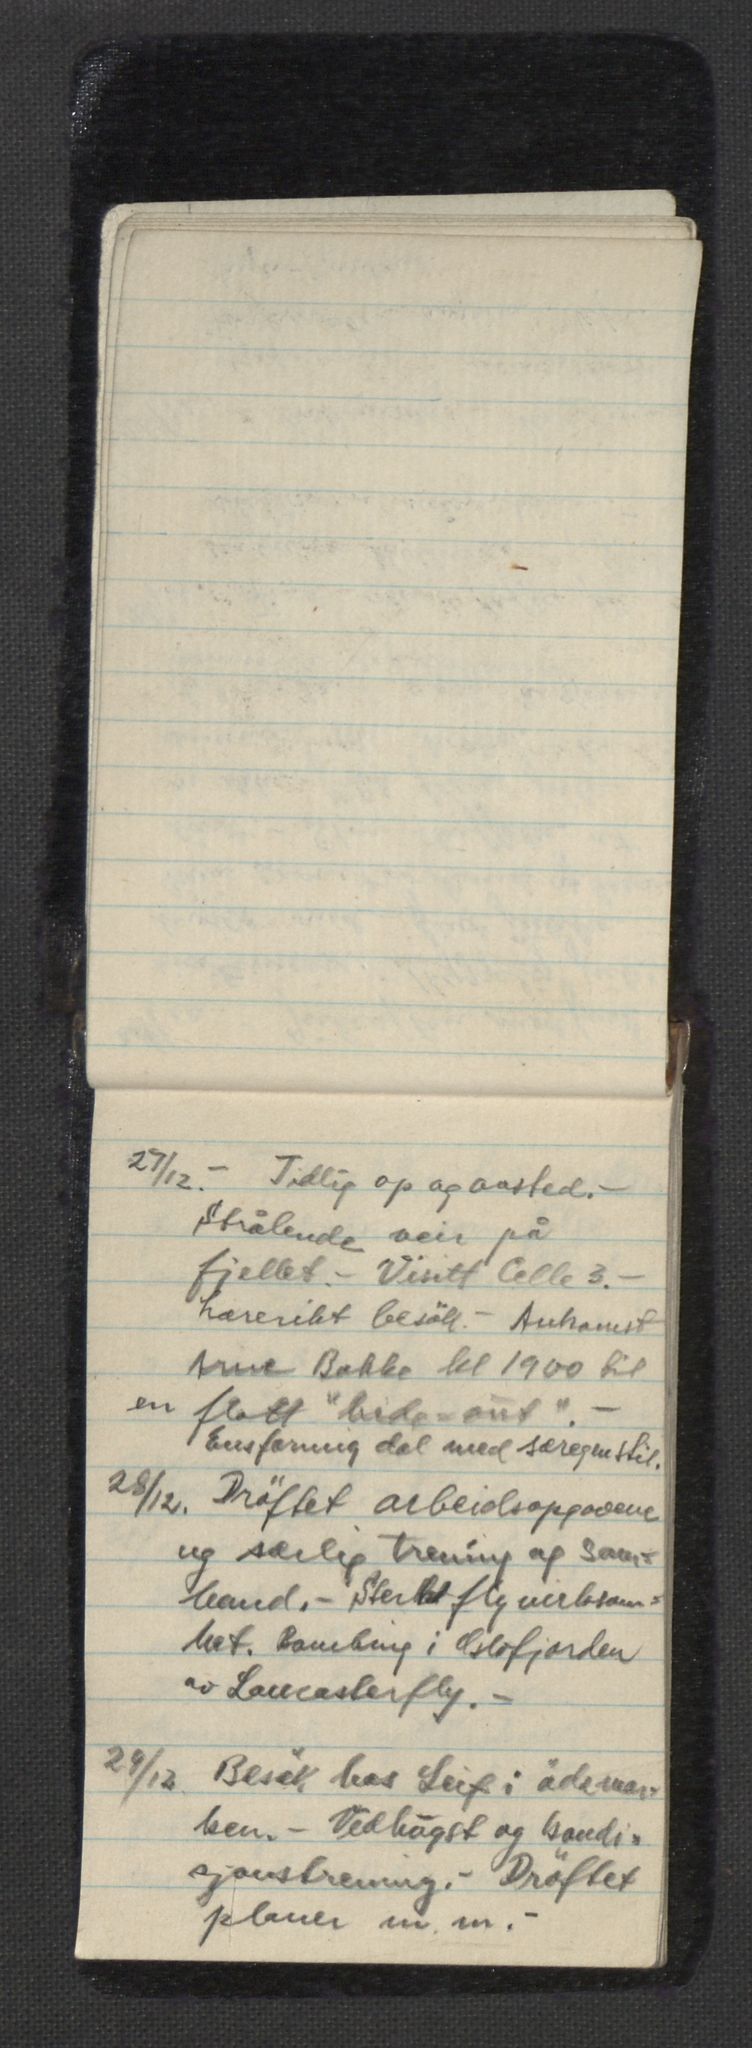 27/12. - Tidlig op og avsted. -
Strålende veir på
fjellet. - Visitt Celle 3. -
Lærerikt besök. - Ankomst
Arne Bakke kl 1900 til
en flott "hide-out". -
Ensformig dal med særegen stil.
28/12. Dröftet arbeidsopgavene
og særlig trening og sam=
band. - Sterk flyvirksom=
het. Bombing i Oslofjorden
av Lancasterfly. -
29/12 Besök hos Leif i ödemar=
ken. - Vedhögst og kondi=
sjonstrening. - Dröftet
planer m. m. -